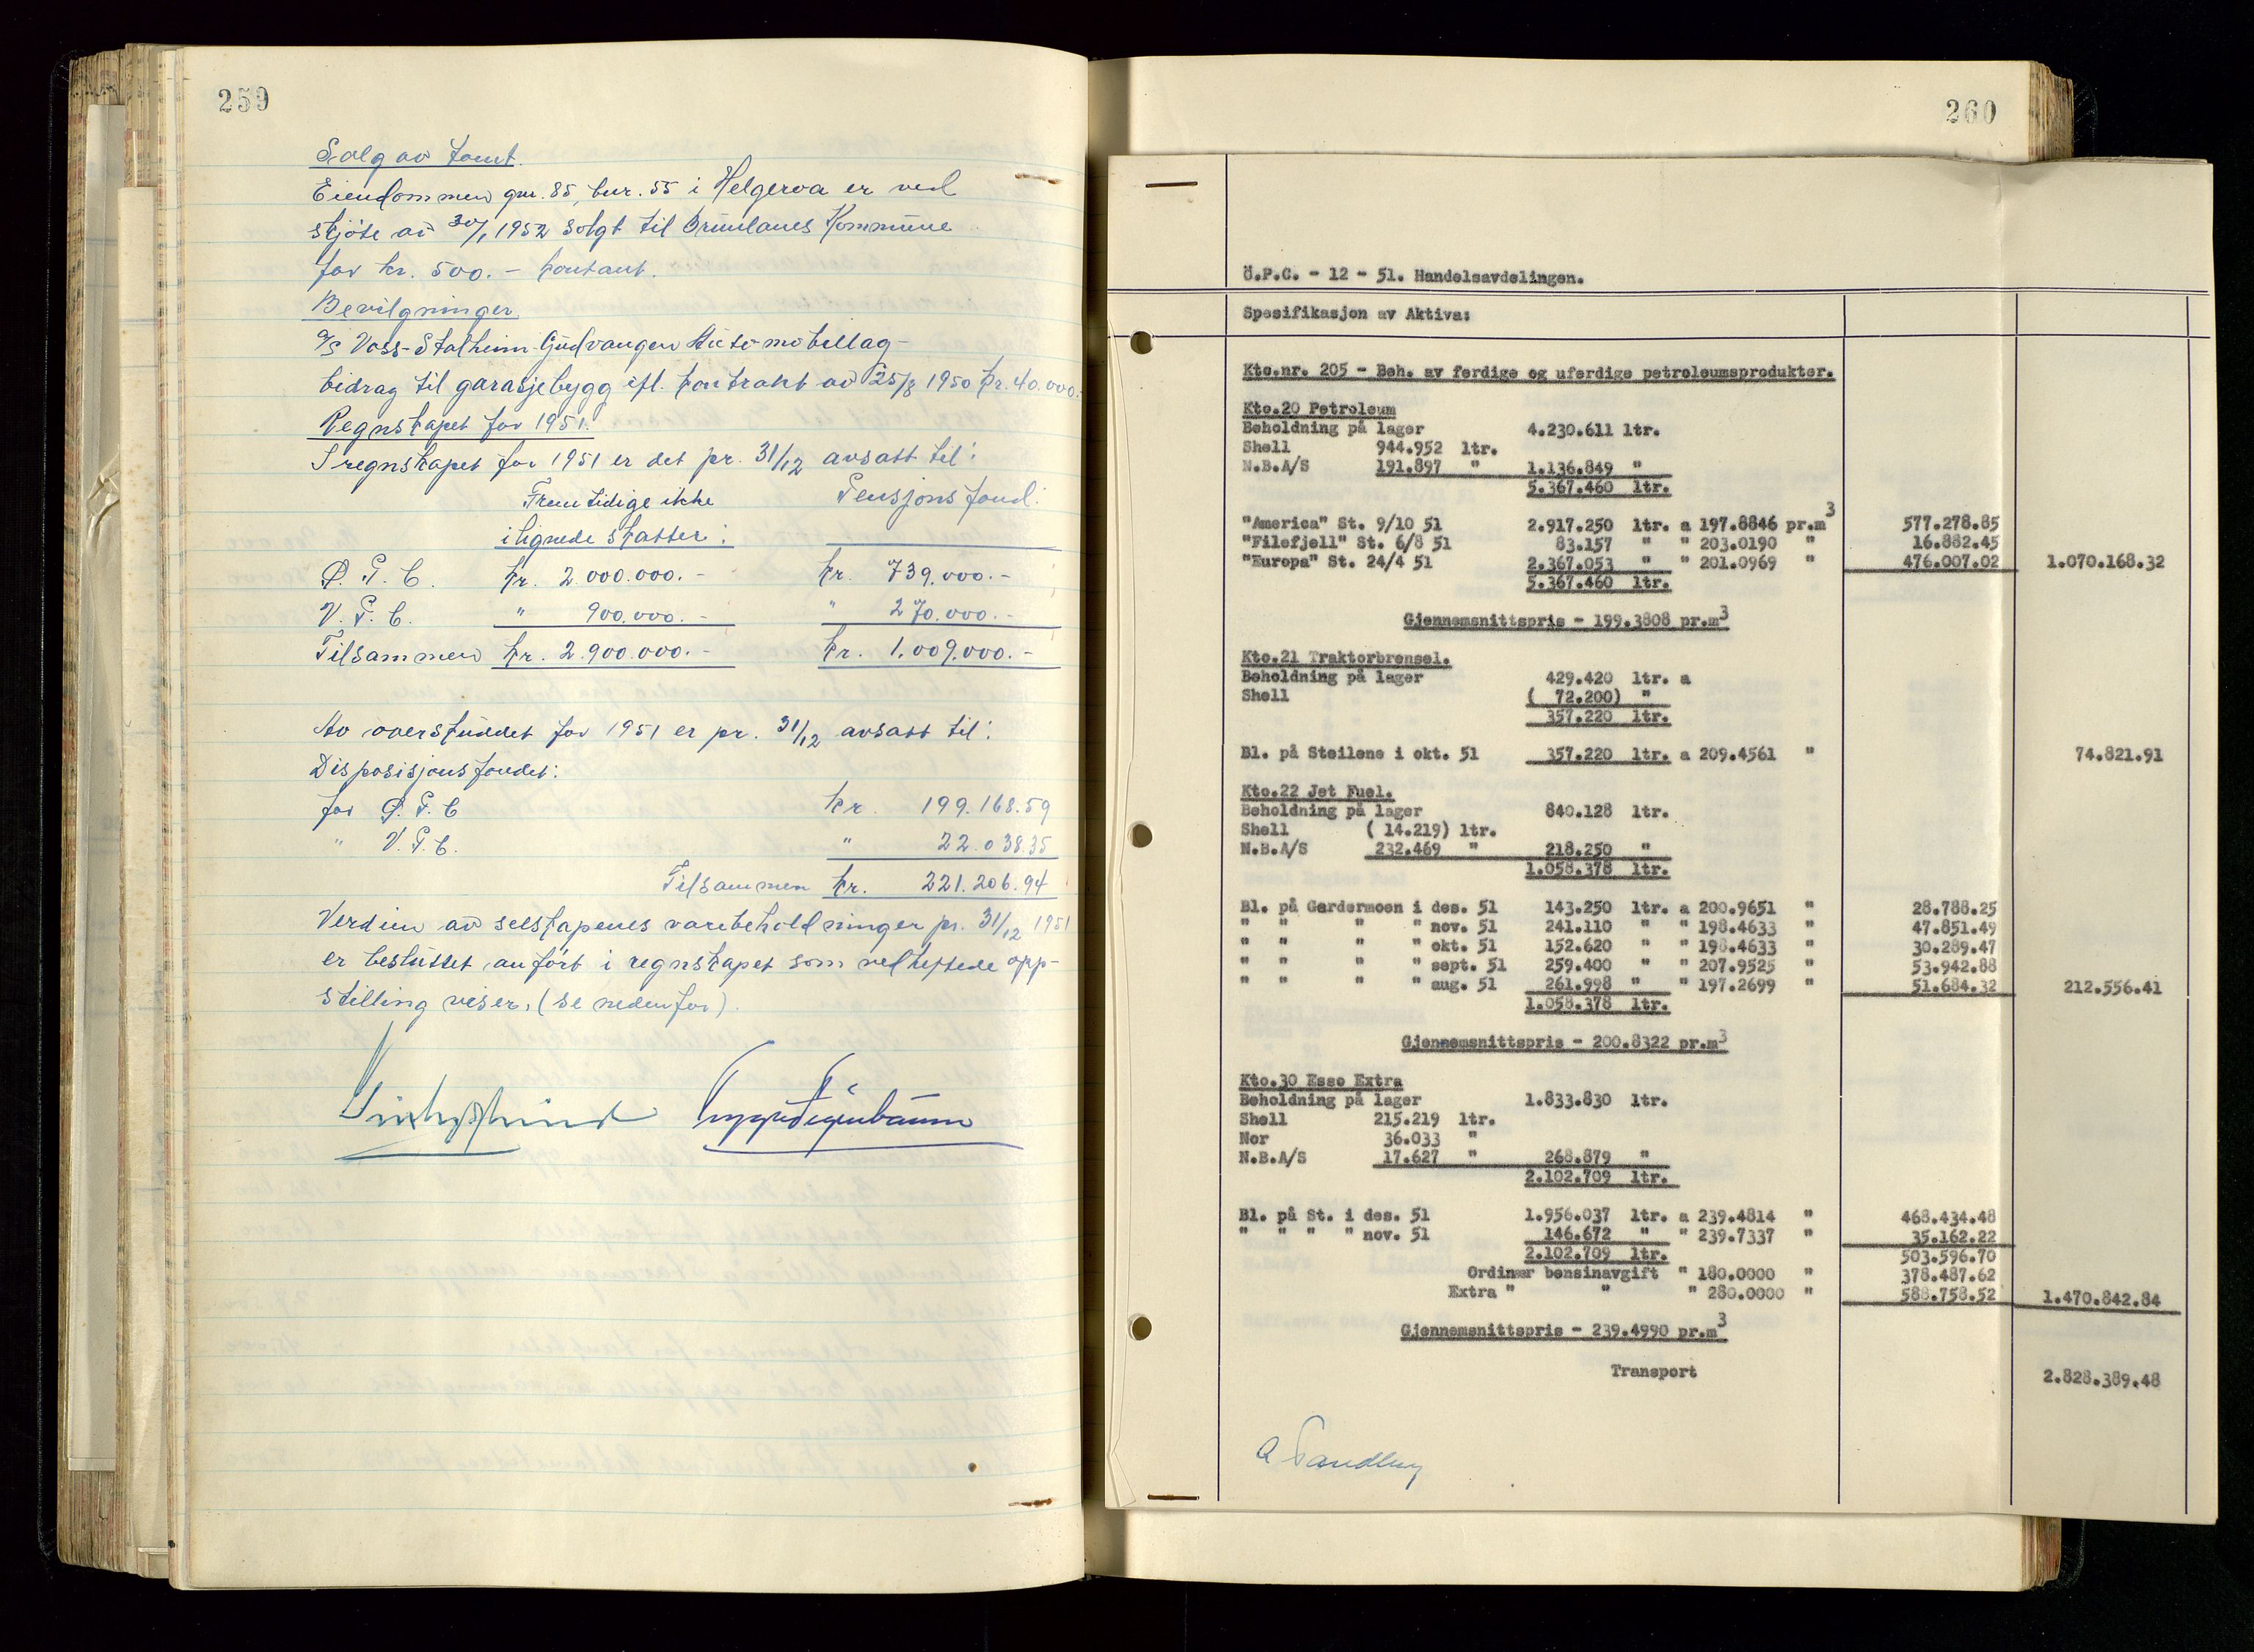 259
Salg av tomt.
Eiendommen gnr. 85, bnr. 55 i Helgeroa er ved
skjöte av 30/1 1952 solgt til Brunlanes Kommune
for kr. 500.- kontant.
Bevilgninger
A/S Voss-Stalheim-Gudvangen Automobillag -
bidrag til garasjebygg ifl. kontrakt av 25/8 1950 kr. 40.000.-
Regnskapet for 1951.
I regnskapet for 1951 er det pr. 31/12 avsatt til:
Fremtidige ikke Pensjonsfond:
ilignede skatter:
Ø.P.C. kr. 2.000.000.- kr. 739.000.-
V.P.C. " 900.000.- " 270.000.-
Tilsammen kr. 2.900.000.- kr. 1.009.000.-
Av overskuddet for 1951 er pr. 31/12 avsatt til:
Disposisjonsfondet:
for Ø.P.C kr. 199.168.59
" V.P.C. " 22.038.35
Tilsammen kr. 221.206.94
Verdien av selskapenes varebeholdninger pr. 31/12 1951
er besluttet anfört i regnskapet som vedheftede opp-
stilling viser, (se nedenfor).
260
Ö.P.C. - 12 - 51. Handelsavdelingen.
Spesifikasjon av Aktiva:
Kto.nr. 205 - Beh. av ferdige og uferdige petroleumsprodukter.
Kto.20 Petroleum
Beholdning på lager 4.230.611 ltr.
Shell 944.952 ltr.
N.B.A/S 191.897 " 1.136.849 "
5.367.460 ltr.
"America" St. 9/10 51 2.917.250 ltr. a 197.8846 pr.m3 577.278.85
"Filefjell" St. 6/8 51 83.157 " " 203.0190 " 16.882.45
"Europa" St. 24/4 51 2.367.053 " " 201.0969 " 476.007.02 1.070.168.32
5.367.460 ltr.
Gjennemsnittspris - 199.3808 pr.m3
Kto.21 Traktorbrensel.
Beholdning på lager 429.420 ltr. a
Shell ( 72.200) "
357.220 ltr.
Bl. på Steilene i okt. 51 357.220 ltr. a 209.4561 " 74.821.91
Kto.22 Jet Fuel.
Beholdning på lager 840.128 ltr.
Shell ( 14.219) ltr.
N.B.A/S 232.469 " 218.250 "
1.058.378 ltr.
Bl. på Gardermoen i des. 51 143.250 ltr. a 200.9651 " 28.788.25
" " " " nov. 51 241.110 " " 198.4633 " 47.851.49
" " " " okt. 51 152.620 " " 198.4633 " 30.289.47
" " " " sept. 51 259.400 " " 207.9525 " 53.942.88
" " " " aug. 51 261.998 " " 197.2699 " 51.684.32 212.556.41
1.058.378 ltr.
Gjennemsnittspris - 200.8322 pr.m3
Kto.30 Esso Extra
Beholdning på lager 1.833.830 ltr.
Shell 215.219 ltr.
Nor 36.033 "
N.B.A/S 17.627 " 268.879 "
2.102.709 ltr.
Bl. på St. i des. 51 1.956.037 ltr. a 239.4814 " 468.434.48
" " " " nov. 51 146.672 " " 239.7337 " 35.162.22
2.102.709 ltr. 503.596.70
Ordinær bensinavgift " 180.0000 " 378.487.62
Extra " " " 280.0000 " 588.758.52 1.470.842.84
Gjennemsnittspris - 239.4990 pr.m3
Transport 2.828.389.48